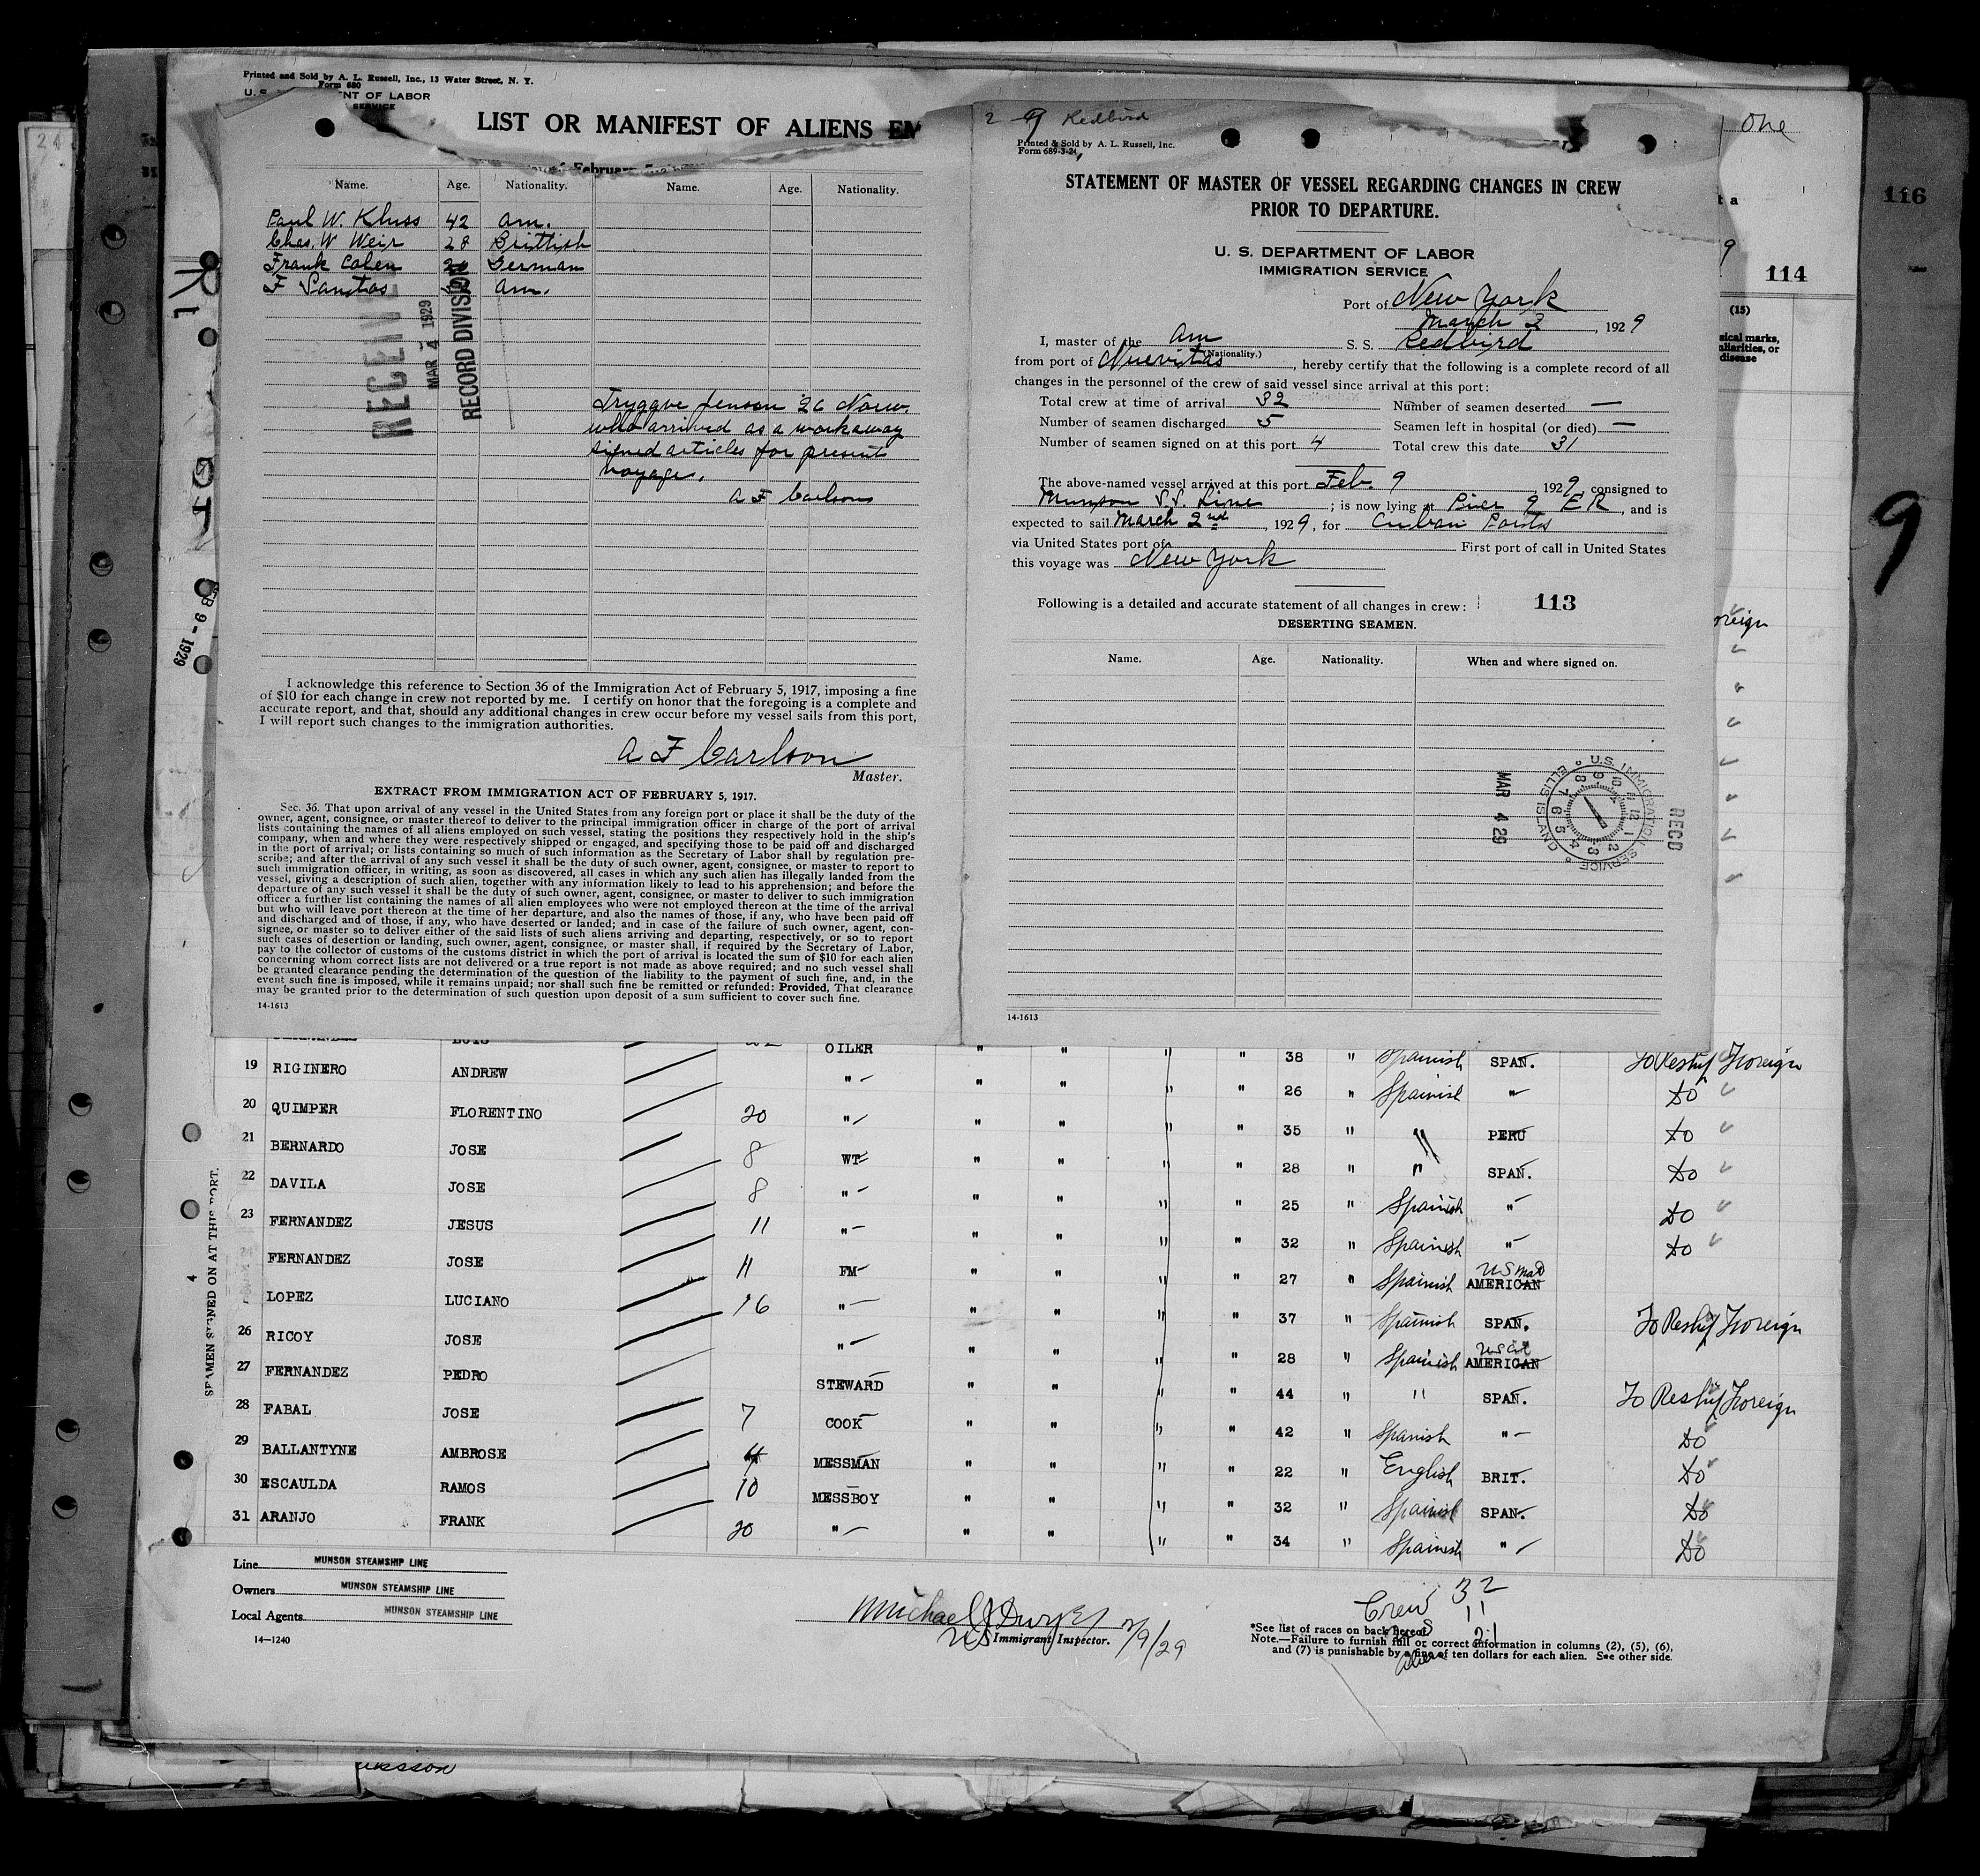 Printed and Sold by A. L. Russell, Inc., 13 Water Street, N. Y.
Form 680
NT OF LABOR
SERVICE
LIST OR MANIFEST OF ALIENS EM
of February
Name. Age. Nationality. Name. Age. Nationality.
Paul W. Kluss 42 am.
Chas. W Weir 28 Brittish
Frank Colen German
F Santos am.
RECEIVED
MAR 4 1929
RECORD DIVISION
Tryggve Jensen 26 Norw.
who arrived as a workaway
signed articles for present
voyage.
A F Carlson
I acknowledge this reference to Section 36 of the Immigration Act of February 5, 1917, imposing a fine
of $10 for each change in crew not reported by me. I certify on honor that the foregoing is a complete and
accurate report, and that, should any additional changes in crew occur before my vessel sails from this port,
I will report such changes to the immigration authorities.
A F Carlson
Master.
EXTRACT FROM IMMIGRATION ACT OF FEBRUARY 5, 1917.
Sec. 36. That upon arrival of any vessel in the United States from any foreign port or place it shall be the duty of the
owner, agent, consignee, or master thereof to deliver to the principal immigration officer in charge of the port of arrival
lists containing the names of all aliens employed on such vessel, stating the positions they respectively hold in the ship's
company, when and where they were respectively shipped or engaged, and specifying those to be paid off and discharged
in the port of arrival; or lists containing so much of such information as the Secretary of Labor shall by regulation pre-
scribe; and after the arrival of any such vessel it shall be the duty of such owner, agent, consignee, or master to report to
such immigration officer, in writing, as soon as discovered, all cases in which any such alien has illegally landed from the
vessel, giving a description of such alien, together with any information likely to lead to his apprehension; and before the
departure of any such vessel it shall be the duty of such owner, agent, consignee, or master to deliver to such immigration
officer a further list containing the names of all alien employees who were not employed thereon at the time of the arrival
but who will leave port thereon at the time of her departure, and also the names of those, if any, who have been paid off
and discharged and of those, if any, who have deserted or landed; and in case of the failure of such owner, agent, con-
signee, or master so to deliver either of the said lists of such aliens arriving and departing, respectively, or so to report
such cases of desertion or landing, such owner, agent, consignee, or master shall, if required by the Secretary of Labor,
pay to the collector of customs of the customs district in which the port of arrival is located the sum of $10 for each alien
concerning whom correct lists are not delivered or a true report is not made as above required; and no such vessel shall
be granted clearance pending the determination of the question of the liability to the payment of such fine, and, in the
event such fine is imposed, while it remains unpaid; nor shall such fine be remitted or refunded: Provided, That clearance
may be granted prior to the determination of such question upon deposit of a sum sufficient to cover such fine.
14-1613
2 - 9 Redbird
Printed & Sold by A. L. Russell, Inc.
Form 689-3-24
STATEMENT OF MASTER OF VESSEL REGARDING CHANGES IN CREW
PRIOR TO DEPARTURE.
U. S. DEPARTMENT OF LABOR
IMMIGRATION SERVICE
Port of New York
March 2, 1929
I, master of the am S. S. Redbird
(Nationality.)
from port of Nuevitas, hereby certify that the following is a complete record of all
changes in the personnel of the crew of said vessel since arrival at this port:
Total crew at time of arrival 32 Number of seamen deserted —
Number of seamen discharged 5 Seamen left in hospital (or died) —
Number of seamen signed on at this port 4 Total crew this date 31
The above-named vessel arrived at this port Feb. 9, 1929, consigned to
Munson S.S. Line; is now lying at Pier 9 E R, and is
expected to sail March 2nd, 1929, for Cuban Ports
via United States port of First port of call in United States
this voyage was New York
Following is a detailed and accurate statement of all changes in crew: 113
DESERTING SEAMEN.
Name. Age. Nationality. When and where signed on.
MAR 4 29
U.S. IMMIGRATION SERVICE ELLIS ISLAND
RECD
14-1613
one
116
114
9
(15)
sical marks,
uliarities, or
disease
reign
FEB 9 - 1929
SEAMEN SIGNED ON AT THIS PORT.
4
OILER " " " " 38 " Spanish SPAN. To Reship Foreign
19 RIGINERO ANDREW " " " " " 26 " Spanish " do
20 QUIMPER FLORENTINO 20 " " " " " 35 " " PERU do
21 BERNARDO JOSE 8 WT " " " " 28 " " SPAN. do
22 DAVILA JOSE 8 " " " " " 25 " Spanish " do
23 FERNANDEZ JESUS 11 " " " " " 32 " Spanish " do
FERNANDEZ JOSE 11 FM " " " " 27 " Spanish AMERICAN
LOPEZ LUCIANO 16 " " " " " 37 " Spanish SPAN. To Reship Foreign
26 RICOY JOSE " " " " " 28 " Spanish AMERICAN
27 FERNANDEZ PEDRO STEWARD " " " " 44 " " SPAN. To Reship Foreign
28 FABAL JOSE 7 COOK " " " " 42 " Spanish " do
29 BALLANTYNE AMBROSE 4 MESSMAN " " " " 22 " English BRIT. do
30 ESCAULDA RAMOS 10 MESSBOY " " " " 32 " Spanish SPAN. do
31 ARANJO FRANK 20 " " " " " 34 " Spanish " do
Line MUNSON STEAMSHIP LINE
Owners MUNSON STEAMSHIP LINE
Local Agents MUNSON STEAMSHIP LINE
14—1240
Michael J Dwyer 2/9/29
US Immigrant Inspector.
Crew 32
11
21
*See list of races on back hereof.
Note.—Failure to furnish full or correct information in columns (2), (5), (6),
and (7) is punishable by a fine of ten dollars for each alien. See other side.
9